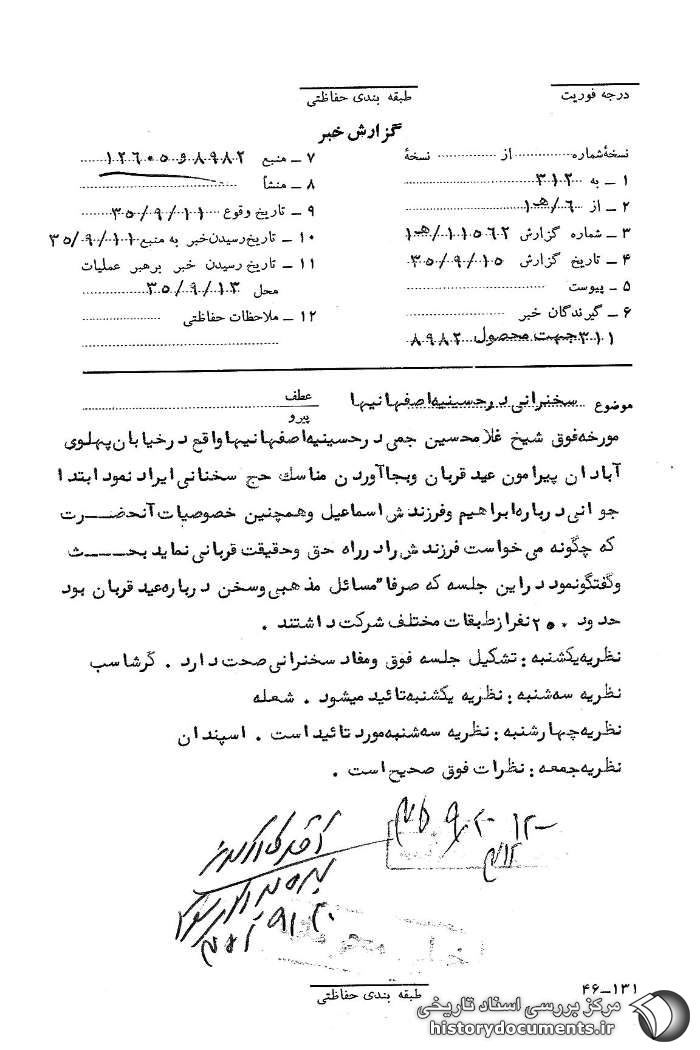 درجه فوریت
طبقه بندی حفاظتی
گزارش خبر
نسخهٔ شماره از نسخهٔ
۱ ـ به ۳۱۲
۲ ـ از ۶/هـ۱
۳ ـ شماره گزارش ۱۱۵۶۲/هـ۱
۴ ـ تاریخ گزارش ۳۵/۹/۱۵
۵ ـ پیوست
۶ ـ گیرندگان خبر
۳۱۱ جهت محصول ۸۹۸۲
۷ ـ منبع ۸۹۸۲ و ۱۲۶۰۵
۸ ـ منشأ
۹ ـ تاریخ وقوع ۳۵/۹/۱۱
۱۰ ـ تاریخ رسیدن خبر به منبع ۳۵/۹/۱۱
۱۱ ـ تاریخ رسیدن خبر برهبر عملیات
محل ۳۵/۹/۱۳
۱۲ ـ ملاحظات حفاظتی
موضوع سخنرانی در حسینیه اصفهانیها
عطف
پیرو
مورخه فوق شیخ غلامحسین جمی در حسینیه اصفهانیها واقع در خیابان پهلوی
آبادان پیرامون عید قربان وبجا آوردن مناسك حج سخنانی ایراد نمود ابتدا
جوانی درباره ابراهیم وفرزندش اسماعیل وهمچنین خصوصیات آنحضرت
که چگونه می خواست فرزندش را در راه حق وحقیقت قربانی نماید بحث
وگفتگو نمود در این جلسه که صرفا" مسائل مذهبی وسخن درباره عید قربان بود
حدود ۲۰۰ نفر از طبقات مختلف شرکت داشتند .
نظریه یکشنبه : تشکیل جلسه فوق ومفاد سخنرانی صحت دارد . گرشاسب
نظریه سه شنبه : نظریه یکشنبه تائید میشود . شعله
نظریه چهارشنبه : نظریه سه شنبه مورد تائید است . اسپندان
نظریه جمعه : نظرات فوق صحیح است .
طبقه بندی حفاظتی
۴۶-۱۳۱
مرکز بررسی اسناد تاریخی
historydocuments.ir